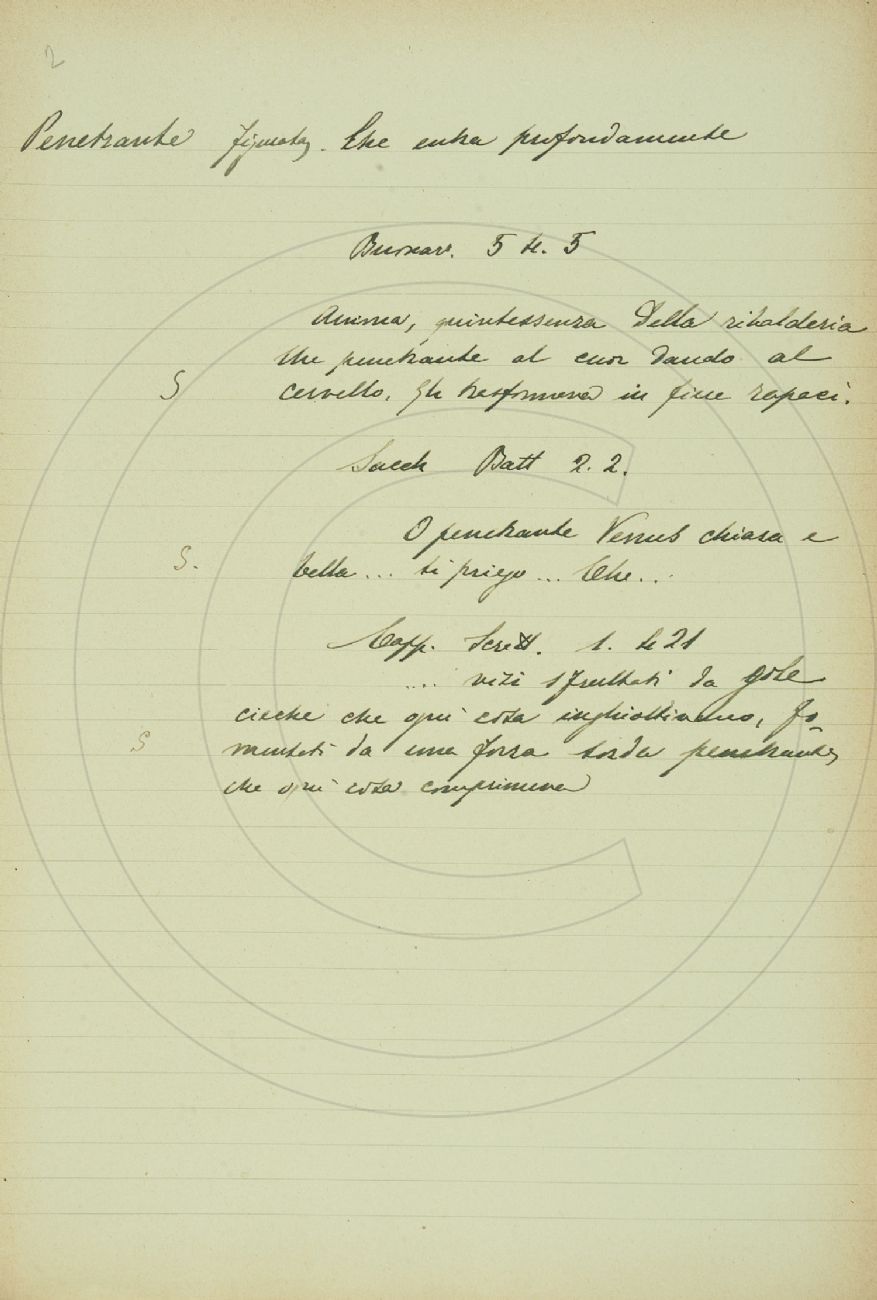 2
Penetrante figurato. Che entra profondamente
Buonar. 5 4. 5
Anima, quintessenza della ribalderia
Che penetrante al cuor dando al
S cervello, gli trasformava in fine rapaci.
Sacch Batt 2. 2.
O penetrante Venus chiara e
S. bella... ti priego... Che...
Capp. Scritt. 1. 421
.... vizi sfruttati da gole
cieche che ogni cosa inghiottivano, fo-
S mentati da una forza sorda penetrante,
che ogni cosa comprimeva